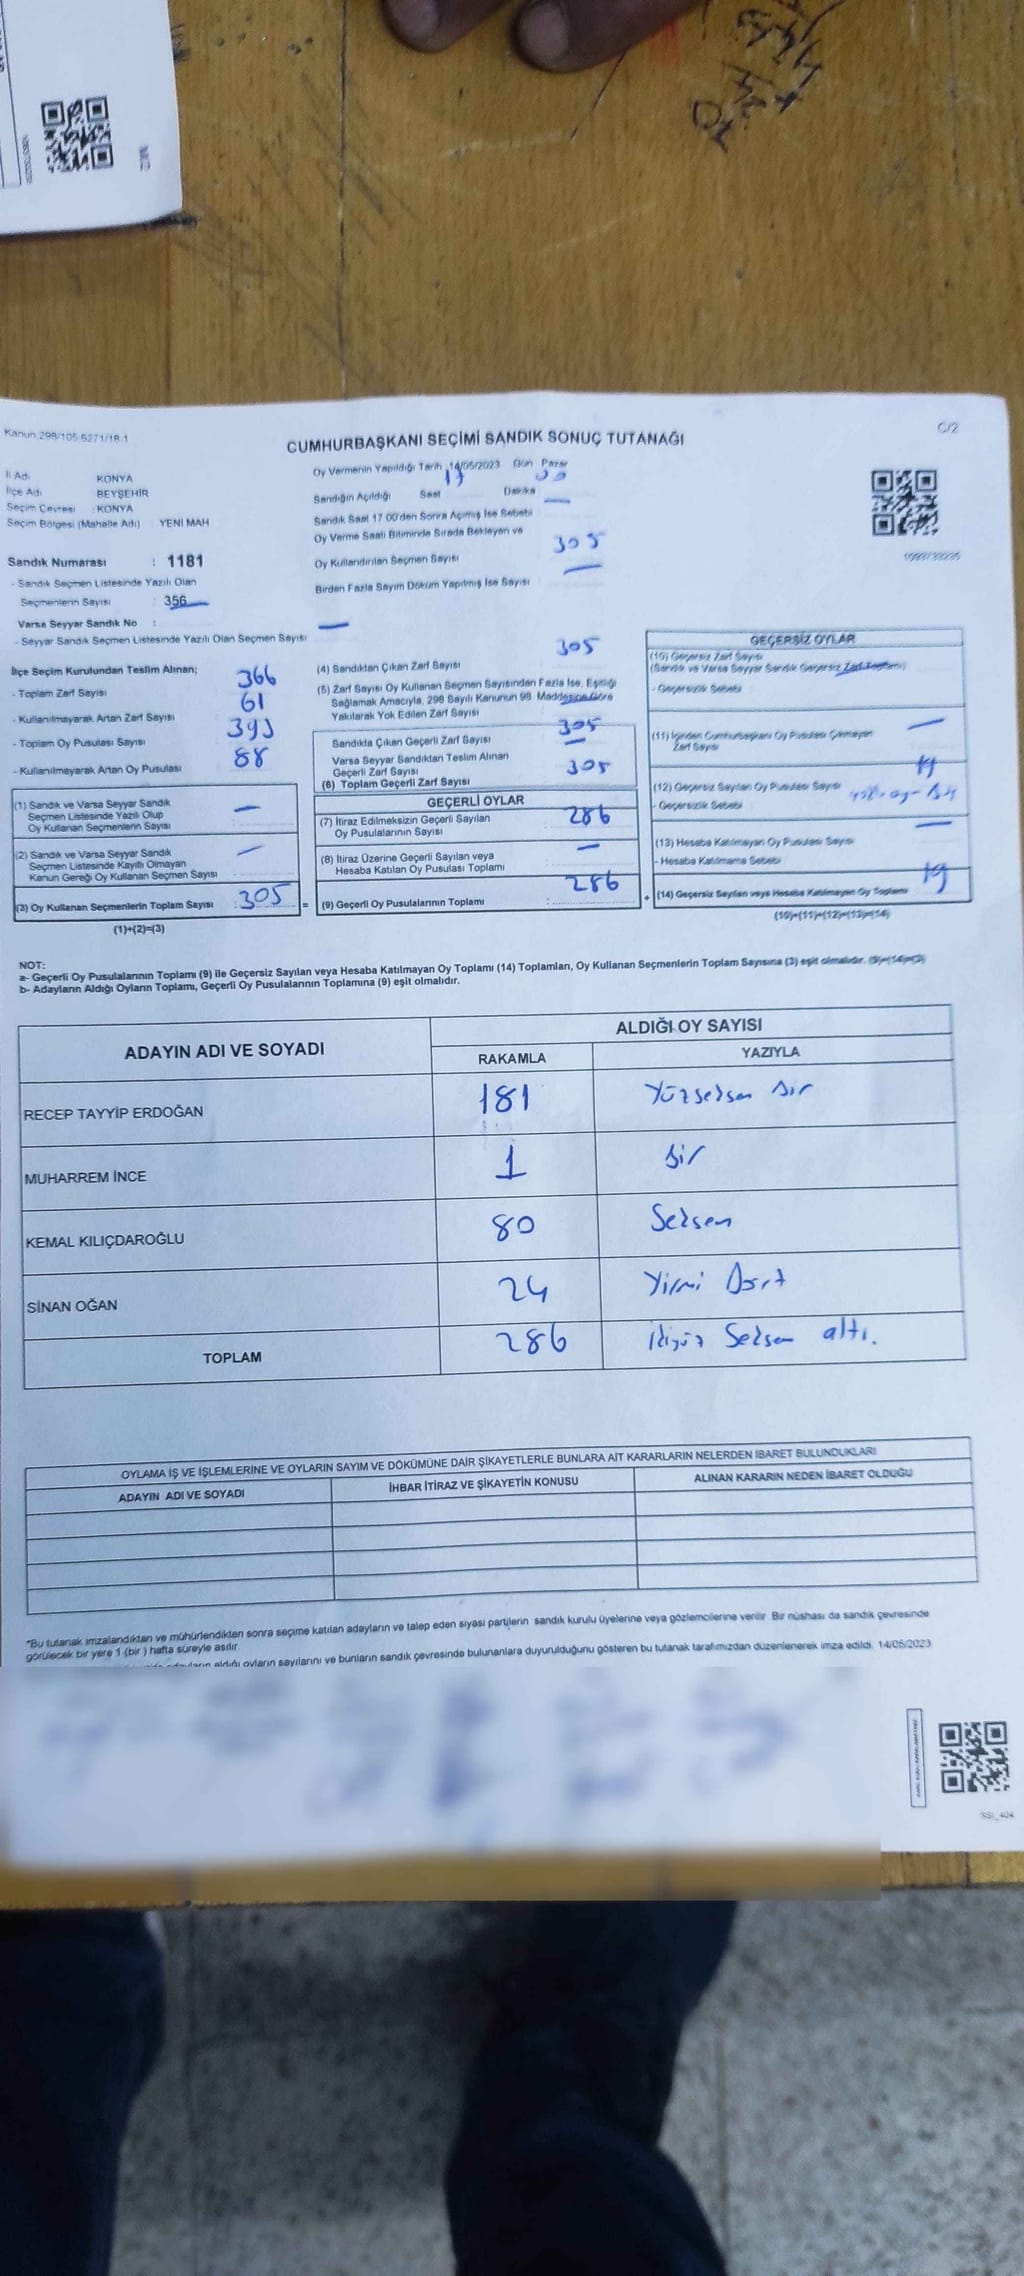 Kanun 298/105.6271/18-1
C/2
CUMHURBAŞKANI SEÇİMİ SANDIK SONUÇ TUTANAĞI
İl Adı KONYA
İlçe Adı BEYŞEHİR
Seçim Çevresi : KONYA
Seçim Bölgesi (Mahalle Adı) YENİ MAH
Sandık Numarası : 1181
- Sandık Seçmen Listesinde Yazılı Olan
Seçmenlerin Sayısı : 356
Varsa Seyyar Sandık No :
- Seyyar Sandık Seçmen Listesinde Yazılı Olan Seçmen Sayısı
Oy Vermenin Yapıldığı Tarih 14/05/2023 Gün Pazar
Sandığın Açıldığı Saat 17 Dakika
Sandık Saat 17.00'den Sonra Açılmış İse Sebebi
Oy Verme Saati Bitiminde Sırada Bekleyen ve
Oy Kullandırılan Seçmen Sayısı 305
Birden Fazla Sayım Döküm Yapılmış İse Sayısı
İlçe Seçim Kurulundan Teslim Alınan;
- Toplam Zarf Sayısı 366
- Kullanılmayarak Artan Zarf Sayısı 61
- Toplam Oy Pusulası Sayısı 393
- Kullanılmayarak Artan Oy Pusulası 88
(1) Sandık ve Varsa Seyyar Sandık
Seçmen Listesinde Yazılı Olup
Oy Kullanan Seçmenlerin Sayısı
(2) Sandık ve Varsa Seyyar Sandık
Seçmen Listesinde Kayıtlı Olmayan
Kanun Gereği Oy Kullanan Seçmen Sayısı
(3) Oy Kullanan Seçmenlerin Toplam Sayısı : 305 =
(1)+(2)=(3)
(4) Sandıktan Çıkan Zarf Sayısı 305
(5) Zarf Sayısı Oy Kullanan Seçmen Sayısından Fazla İse, Eşitliği
Sağlamak Amacıyla, 298 Sayılı Kanunun 98. Maddesine Göre
Yakılarak Yok Edilen Zarf Sayısı
Sandıkta Çıkan Geçerli Zarf Sayısı 305
Varsa Seyyar Sandıktan Teslim Alınan
Geçerli Zarf Sayısı
(6) Toplam Geçerli Zarf Sayısı 305
GEÇERLİ OYLAR
(7) İtiraz Edilmeksizin Geçerli Sayılan
Oy Pusulalarının Sayısı 286
(8) İtiraz Üzerine Geçerli Sayılan veya
Hesaba Katılan Oy Pusulası Toplamı
(9) Geçerli Oy Pusulalarının Toplamı : 286 +
GEÇERSİZ OYLAR
(10) Geçersiz Zarf Sayısı
(Sandık ve Varsa Seyyar Sandık Geçersiz Zarf Toplamı)
- Geçersizlik Sebebi
(11) İçinden Cumhurbaşkanı Oy Pusulası Çıkmayan
Zarf Sayısı
(12) Geçersiz Sayılan Oy Pusulası Sayısı 19
- Geçersizlik Sebebi
(13) Hesaba Katılmayan Oy Pusulası Sayısı
- Hesaba Katılmama Sebebi
(14) Geçersiz Sayılan veya Hesaba Katılmayan Oy Toplamı 19
(10)+(11)+(12)+(13)=(14)
NOT:
a- Geçerli Oy Pusulalarının Toplamı (9) ile Geçersiz Sayılan veya Hesaba Katılmayan Oy Toplamı (14) Toplamları, Oy Kullanan Seçmenlerin Toplam Sayısına (3) eşit olmalıdır. (9)+(14)=(3)
b- Adayların Aldığı Oyların Toplamı, Geçerli Oy Pusulalarının Toplamına (9) eşit olmalıdır.
ADAYIN ADI VE SOYADI
ALDIĞI OY SAYISI
RAKAMLA YAZIYLA
RECEP TAYYİP ERDOĞAN 181 Yüzseksen bir
MUHARREM İNCE 1 bir
KEMAL KILIÇDAROĞLU 80 Seksen
SİNAN OĞAN 24 Yirmi Dört
TOPLAM 286 İkiyüz Seksen altı.
OYLAMA İŞ VE İŞLEMLERİNE VE OYLARIN SAYIM VE DÖKÜMÜNE DAİR ŞİKAYETLERLE BUNLARA AİT KARARLARIN NELERDEN İBARET BULUNDUKLARI
ADAYIN ADI VE SOYADI İHBAR İTİRAZ VE ŞİKAYETİN KONUSU ALINAN KARARIN NEDEN İBARET OLDUĞU
*Bu tutanak imzalandıktan ve mühürlendikten sonra seçime katılan adayların ve talep eden siyasi partilerin sandık kurulu üyelerine veya gözlemcilerine verilir. Bir nüshası da sandık çevresinde
görülecek bir yere 1 (bir ) hafta süreyle asılır.
aldığı oyların sayılarını ve bunların sandık çevresinde bulunanlara duyurulduğunu gösteren bu tutanak tarafımızdan düzenlenerek imza edildi. 14/05/2023